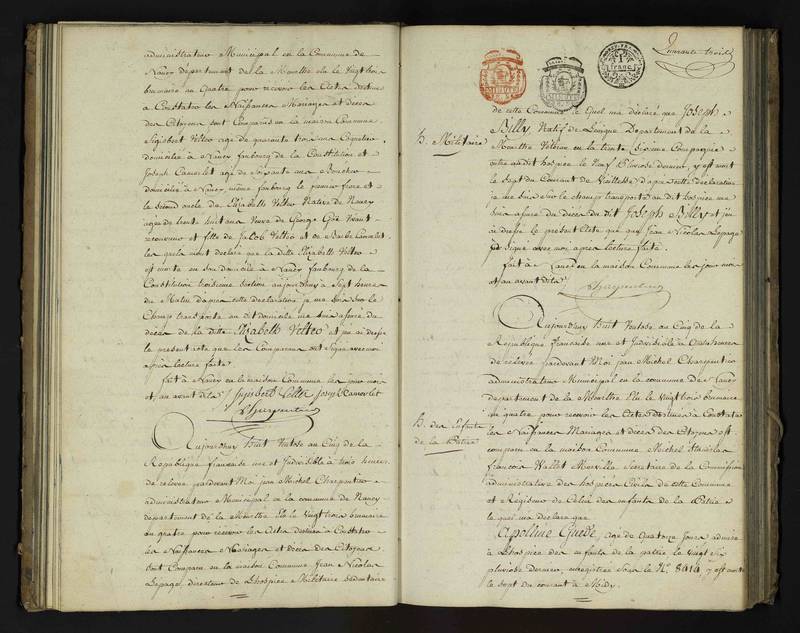 administrateur Municipal en la Commune de
Nancy département de la Meurthe élu le Vingt trois
brumaire an Quatre pour recevoir les Actes destinés
a Constater les Naissances Mariages et décès
des Citoyens sont Comparus en la maison Commune
Sigisbert Veltec agé de quarante trois ans
domicilié a Nancy faubourg de la Constitution et
Joseph Camerlet agé de Soixante ans
domicilié a Nancy même faubourg le premier frere et
le second oncle de Elizabeth Veltec Native de Nancy
agée de trente huit ans Veuve de George
et fille de Jacob Veltec et de Barbe Camerlet
les quels m'ont déclaré que la ditte Elizabeth Veltec
est morte en son domicile a Nancy faubourg de la
Constitution section aujourd'huy a Sept heures
du Matin d'après cette déclaration je me suis sur le
Champ transporté au dit domicile me suis assuré du
décès de la ditte Elizabeth Veltec et j'ai dressé
le present acte que les Comparans ont Signé avec moi
après lecture faite
fait a Nancy en la maison Commune les jour mois
et an avant dits Joseph Camerlet
Charpentier
Aujourd'huy huit Ventose an Cinq de la
République française une et Indivisible a trois heures
de relevée pardevant Moi jean Michel Charpentier
administrateur Municipal en la commune de Nancy
département de la Meurthe Elu le Vingt trois brumaire
an quatre pour recevoir les Actes destinés a Constater
les Naissances Mariages et décès des Citoyens
sont Comparu en la maison Commune Jean Nicolas
Lepage, directeur de L'hospice Militaire
Quarante trois
1
franc
H. Militaire
de cette Commune le quel m'a déclaré que Joseph
Billy Natif de Departement de la
Meurthe Vétéran en la trente Sixieme Compagnie
entré au dit hospice le Neuf Pluviose dernier, y est mort
le Sept du Courant de Vieillesse d'après cette déclaration
je me suis Sur le champ transporté au dit hospice me
suis assuré du Décès du dit Joseph Billy et j'ai
dressé le present Acte que Jean Nicolas Lepage
a Signé avec moi après lecture faite
fait a Nancy en la maison Commune les jour mois
et an avant dits
Charpentier
Aujourd'huy huit Ventose an Cinq de la
République française une et Indivisible a Quatre heures
de relevée pardevant Moi jean Michel Charpentier
administrateur Municipal en la commune de Nancy
département de la Meurthe Elu le Vingt trois brumaire
an quatre pour recevoir les Actes destinés a Constater
H. des Enfants
de la Patrie
les Naissances Mariages et décès des Citoyens est
comparu en la maison Commune Michel Stanislas
François Vallet Merville Secretaire de la Commission
administrative des hospices Civils de cette Commune
et Régisseur de Celui des enfants de la Patrie
le quel m'a déclaré que
Apolline agée de Quatorze jours admise
a L'hospice des enfants de la patrie le Vingt Six
pluviose dernier, enregistrée Sous le N.° 8014, y est morte
le Sept du courant a Midy